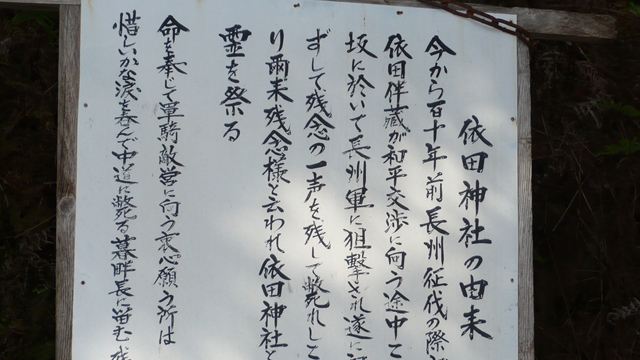 依田神社の由来
今から百十年前長州征伐の際
依田伴蔵が和平交渉に向う途中
坂に於いて長州軍に狙撃され遂に
ずして残念の一声を残して斃れし
り爾来残念様と云われ依田神社と
霊を祭る
命を奉して軍騎敵営に向う衷心願う所は
惜しいかな涙を呑んで中道に斃る暮畔長に